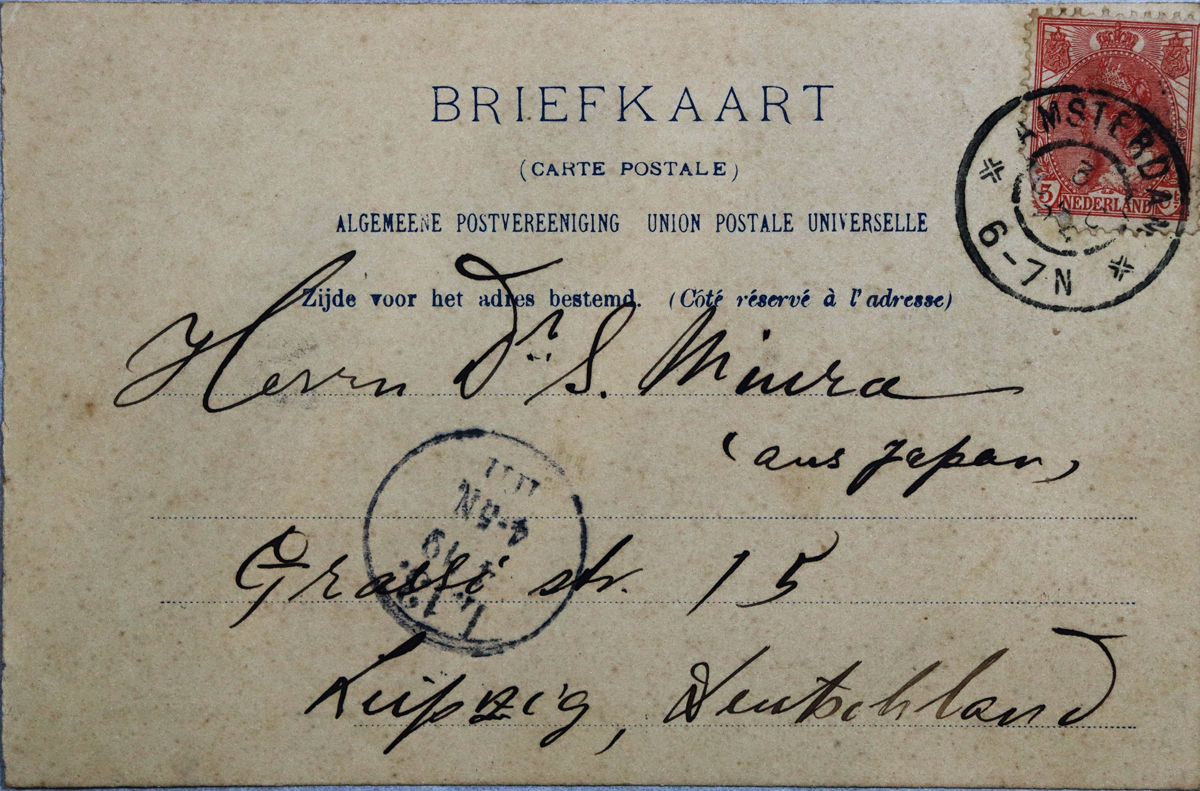 BRIEFKAART
(CARTE POSTALE)
ALGEMEENE POSTVEREENIGING UNION POSTALE UNIVERSELLE
Zijde voor het adres bestemd. (Côté réservé à l'adresse)
5 NEDERLAND 5
AMSTERDAM
6-7N
Herrn Dr. S. Miura
(aus Japan)
4-5N
Grassi str. 15
Leipzig, Deutschland